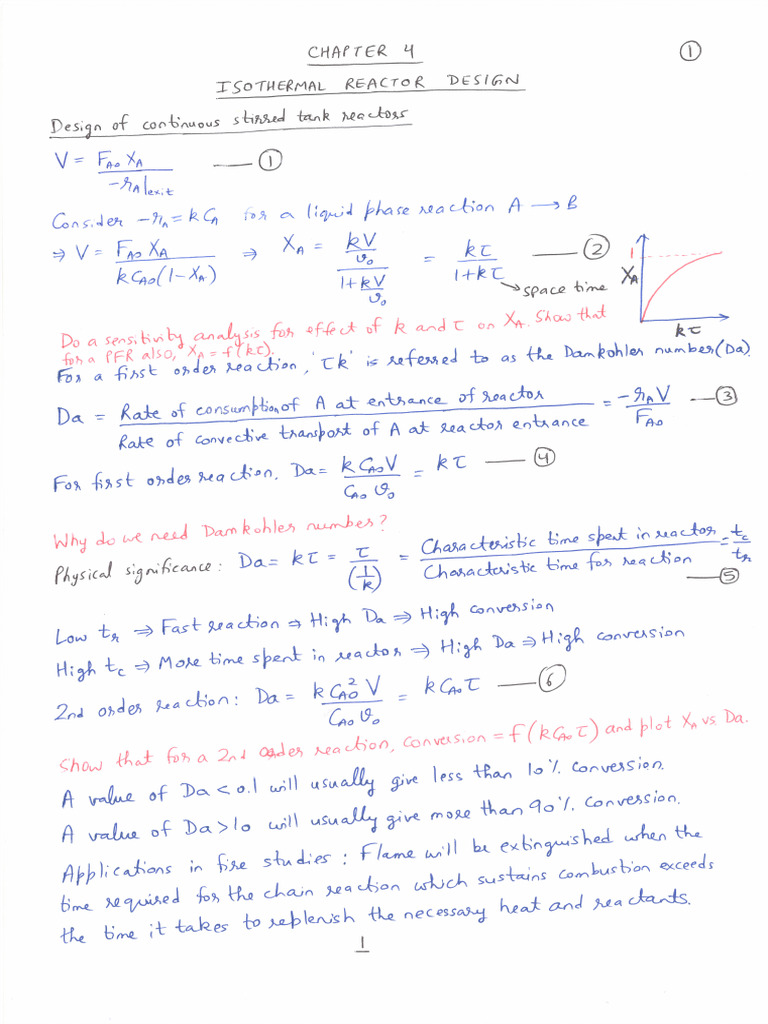 CHAPTER 4
①
ISOTHERMAL REACTOR DESIGN
Design of continuous stirred tank reactors
V = F_A0 X_A / -r_A|exit —— ①
Consider -r_A = k C_A for a liquid phase reaction A → B
⇒ V = F_A0 X_A / k C_A0 (1 - X_A) ⇒ X_A = (kV/υ_0) / (1 + kV/υ_0) = kτ / 1 + kτ —— ②
→ space time
1
X_A
kτ
Do a sensitivity analysis for effect of k and τ on X_A. Show that
for a PFR also, X_A = f(kτ).
For a first order reaction, 'τk' is referred to as the Damkohler number (Da).
Da = Rate of consumption of A at entrance of reactor / Rate of convective transport of A at reactor entrance = -r_A V / F_A0 —— ③
For first order reaction, Da = k C_A0 V / C_A0 υ_0 = kτ —— ④
Why do we need Damkohler number?
Physical significance: Da = kτ = τ / (1/k) = Characteristic time spent in reactor / Characteristic time for reaction = t_c / t_r —— ⑤
Low t_r ⇒ Fast reaction ⇒ High Da ⇒ High conversion
High t_c ⇒ More time spent in reactor ⇒ High Da ⇒ High conversion
2nd order reaction: Da = k C_A0² V / C_A0 υ_0 = k C_A0 τ —— ⑥
Show that for a 2nd order reaction, conversion = f(k C_A0 τ) and plot X_A vs. Da.
A value of Da < 0.1 will usually give less than 10% conversion.
A value of Da > 10 will usually give more than 90% conversion.
Applications in fire studies : Flame will be extinguished when the
time required for the chain reaction which sustains combustion exceeds
the time it takes to replenish the necessary heat and reactants.
1